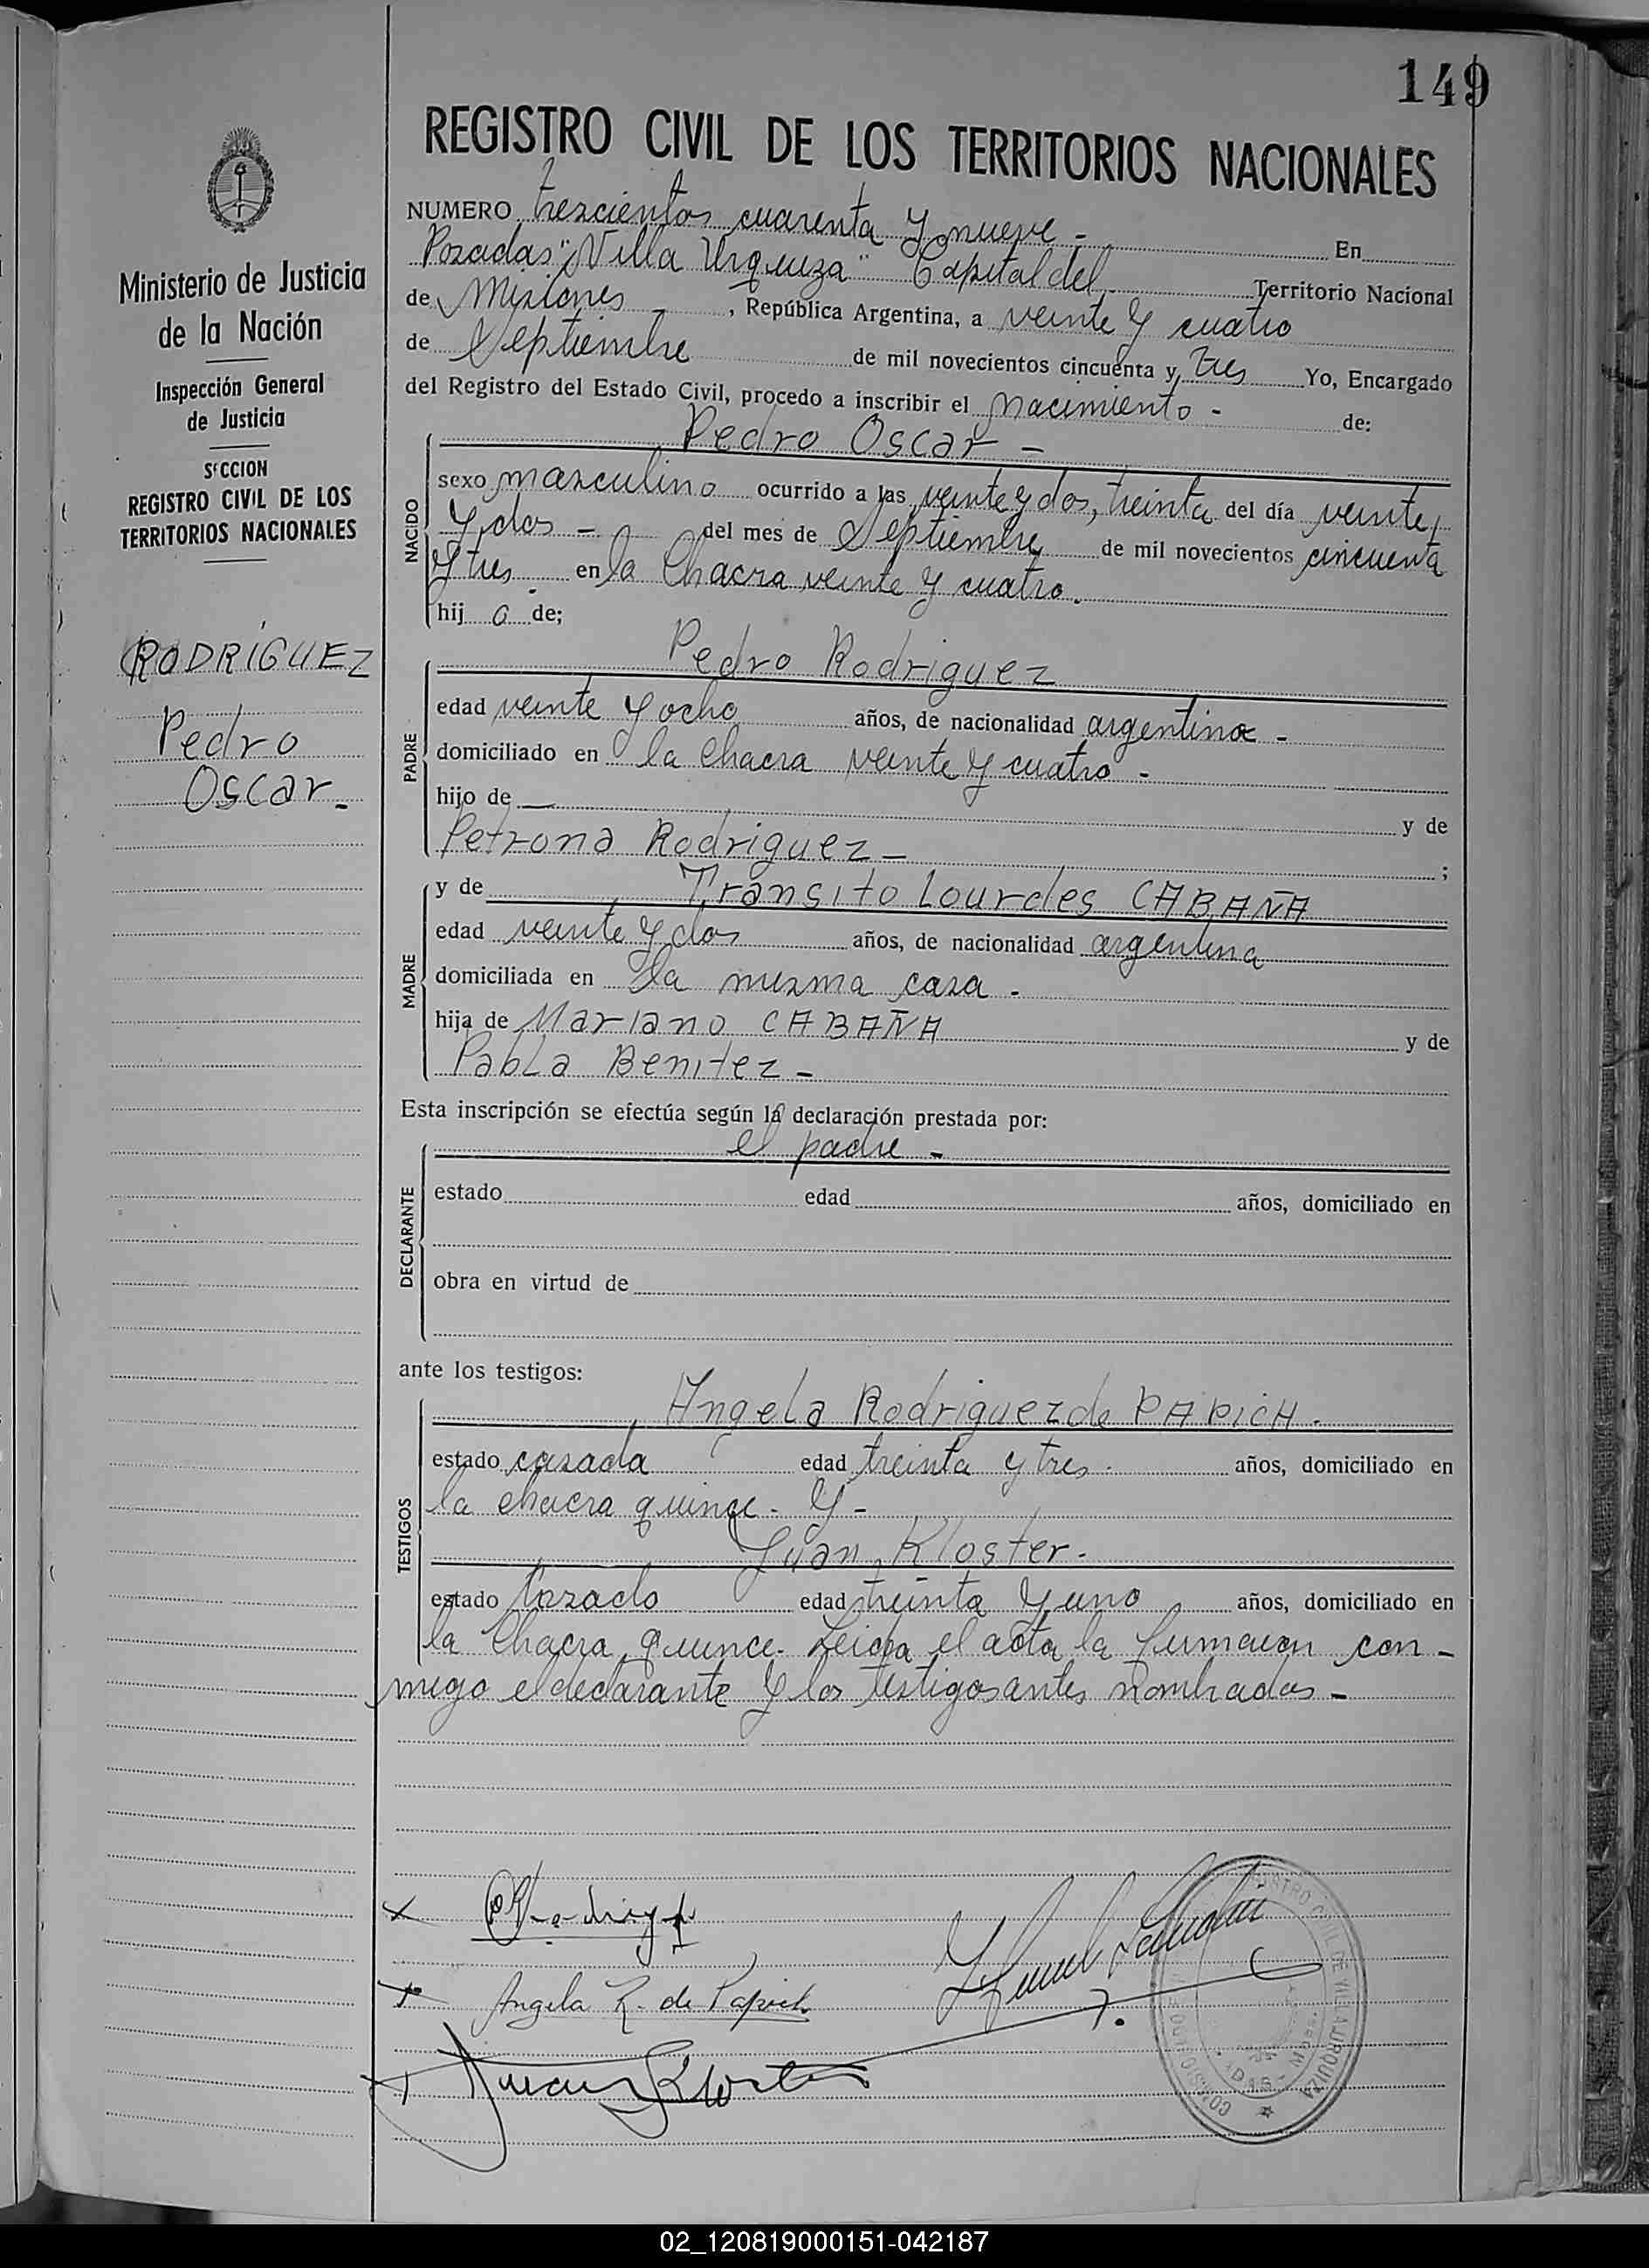 149
REGISTRO CIVIL DE LOS TERRITORIOS NACIONALES
Ministerio de Justicia
de la Nación
Inspección General
de Justicia
SECCION
REGISTRO CIVIL DE LOS
TERRITORIOS NACIONALES
RODRÍGUEZ
Pedro
Oscar.-
NUMERO trescientos cuarenta y nueve - En
Posadas "Villa Urquiza" Capital del Territorio Nacional
de Misiones - , República Argentina, a veinte y cuatro
de Septiembre de mil novecientos cincuenta y tres Yo, Encargado
del Registro del Estado Civil, procedo a inscribir el nacimiento - de:
Pedro Oscar -
NACIDO
sexo masculino ocurrido a las veinte y dos, treinta del día veinte
y dos - del mes de Septiembre de mil novecientos cincuenta
y tres en la Chacra veinte y cuatro.
hij o de;
PADRE
Pedro Rodriguez
edad veinte y ocho años, de nacionalidad argentina -
domiciliado en la chacra veinte y cuatro -
hijo de — y de
Petrona Rodriguez - ;
MADRE
y de Transito Lourdes CABAÑA
edad veinte y dos años, de nacionalidad argentina
domiciliada en la misma casa -
hija de Mariano CABAÑA y de
Pabla Benitez -
Esta inscripción se efectúa según la declaración prestada por:
el padre -
DECLARANTE
estado edad años, domiciliado en
obra en virtud de
ante los testigos:
TESTIGOS
Angela Rodriguez de PAPICH.
estado casada edad treinta y tres. años, domiciliado en
la chacra quince - y -
Juan Kloster.
estado Casado edad treinta y uno años, domiciliado en
la Chacra quince. Leida el acta la firmaron con -
migo el declarante y los testigos antes nombrados -
x P Rodriguez
x Angela R. de Papich
x Juan Kloster
REGISTRO CIVIL DE VILLA URQUIZA
02_120819000151-042187